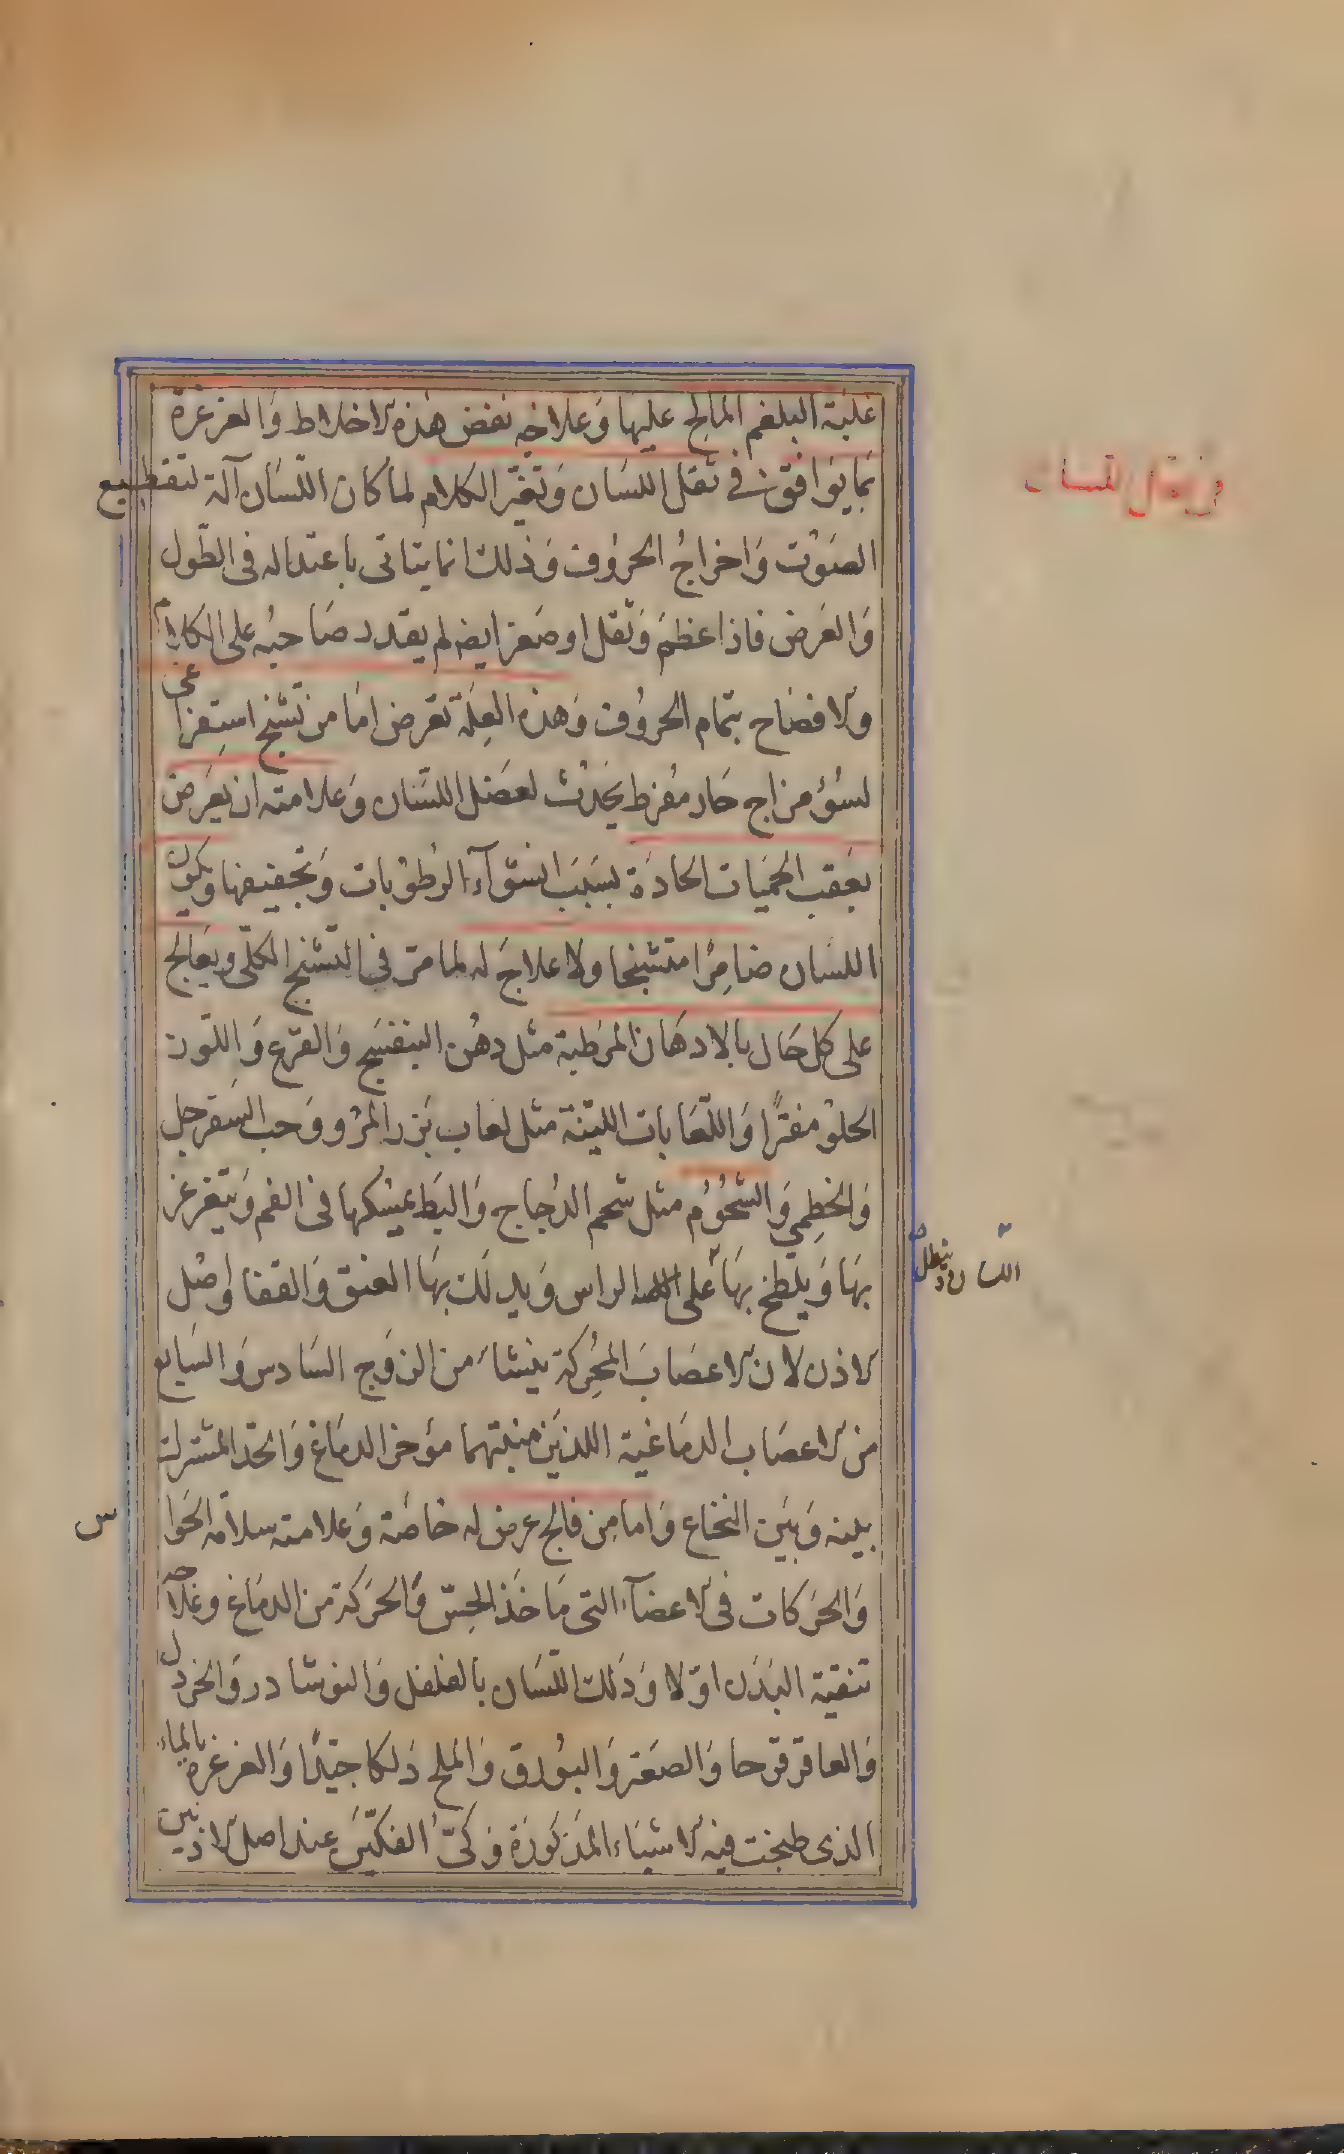 غلبَة البلغم المالح عليها وَعلاجه نفض هٰذه الاخلاط وَالغرغرة
بما يوافق في ثقل اللسَان وَتغيّر الكلام لما كان اللّسَان آلة لتقطيع
الصَوْت وَاخراجُ الحرُوف وَذلك انما يتاتى باعتداله في الطّول
وَالعَرض فاذا عظمَ وَثقل اوصَغر ايضا لم يقدر صَاحبُه على الكلام
والافصَاح بتمام الحرُوف وَهذه العِلّة تعَرض امَا من تشنج استِفراغى
لسُؤ مزاج حَاد مفرط يَحدُث لعضَل اللسَّان وَعلامته ان يعَرض
بعَقب الحمّيات الحادّة بسَبَب انشوآء الرطُوْبات وَتجفيفها ويكون
اللسَان ضامِرًا متشنجا ولا علاجَ له لما مرّ في التشنج الكلّى ويعَالج
على كل حَال بالادهَان المرَطبة مثل دهُن البنفسَج وَالقرَع وَاللّوز
الحلوْ مفترًا وَاللّعَابات الليّنَة مثل لعَاب بَزر المرْو وَحب السَفرجل
وَالخطِمي وَالشّحُوُم مثل شحم الدُجاج وَالبَط يمسْكها في الفم وَيتغرغر
بهَا وَيلطخ بهَا على الراس وَيدلك بهَا العنق وَالقفا واصْل
اللسان وينطل
الاذن لان الاعصَابَ المحُركة ينشاء من الزوَج السَادس وَالسَابع
من الاعصَاب الدمَاغية اللذَين منبتهما مؤخر الدمَاغ وَالحدّ المشترك
بينه وَبيَن النخاع وَامَا مِن فالج عرض له خاصَة وَعلامته سلامَة الحوَاس
وَالحرَكات في الاعضآء التى مَاخَذ الحِسّ وَالحَركة من الدمَاغ وعَلاجه
تنقيَة البَدَن اوّلا وَدَلك اللّسَان بالفلفل وَالنوشادر وَالخردل
وَالعاقرقرحا وَالصعَتر وَالبوُرق وَالملح دَلكا جيّدًا وَالغرغرة بالماء
الذى طبخت فيه الاشيَاء المذكورَة وَكىّ الفكيّنَ عند اصل الاذنين
في ثقل اللسان